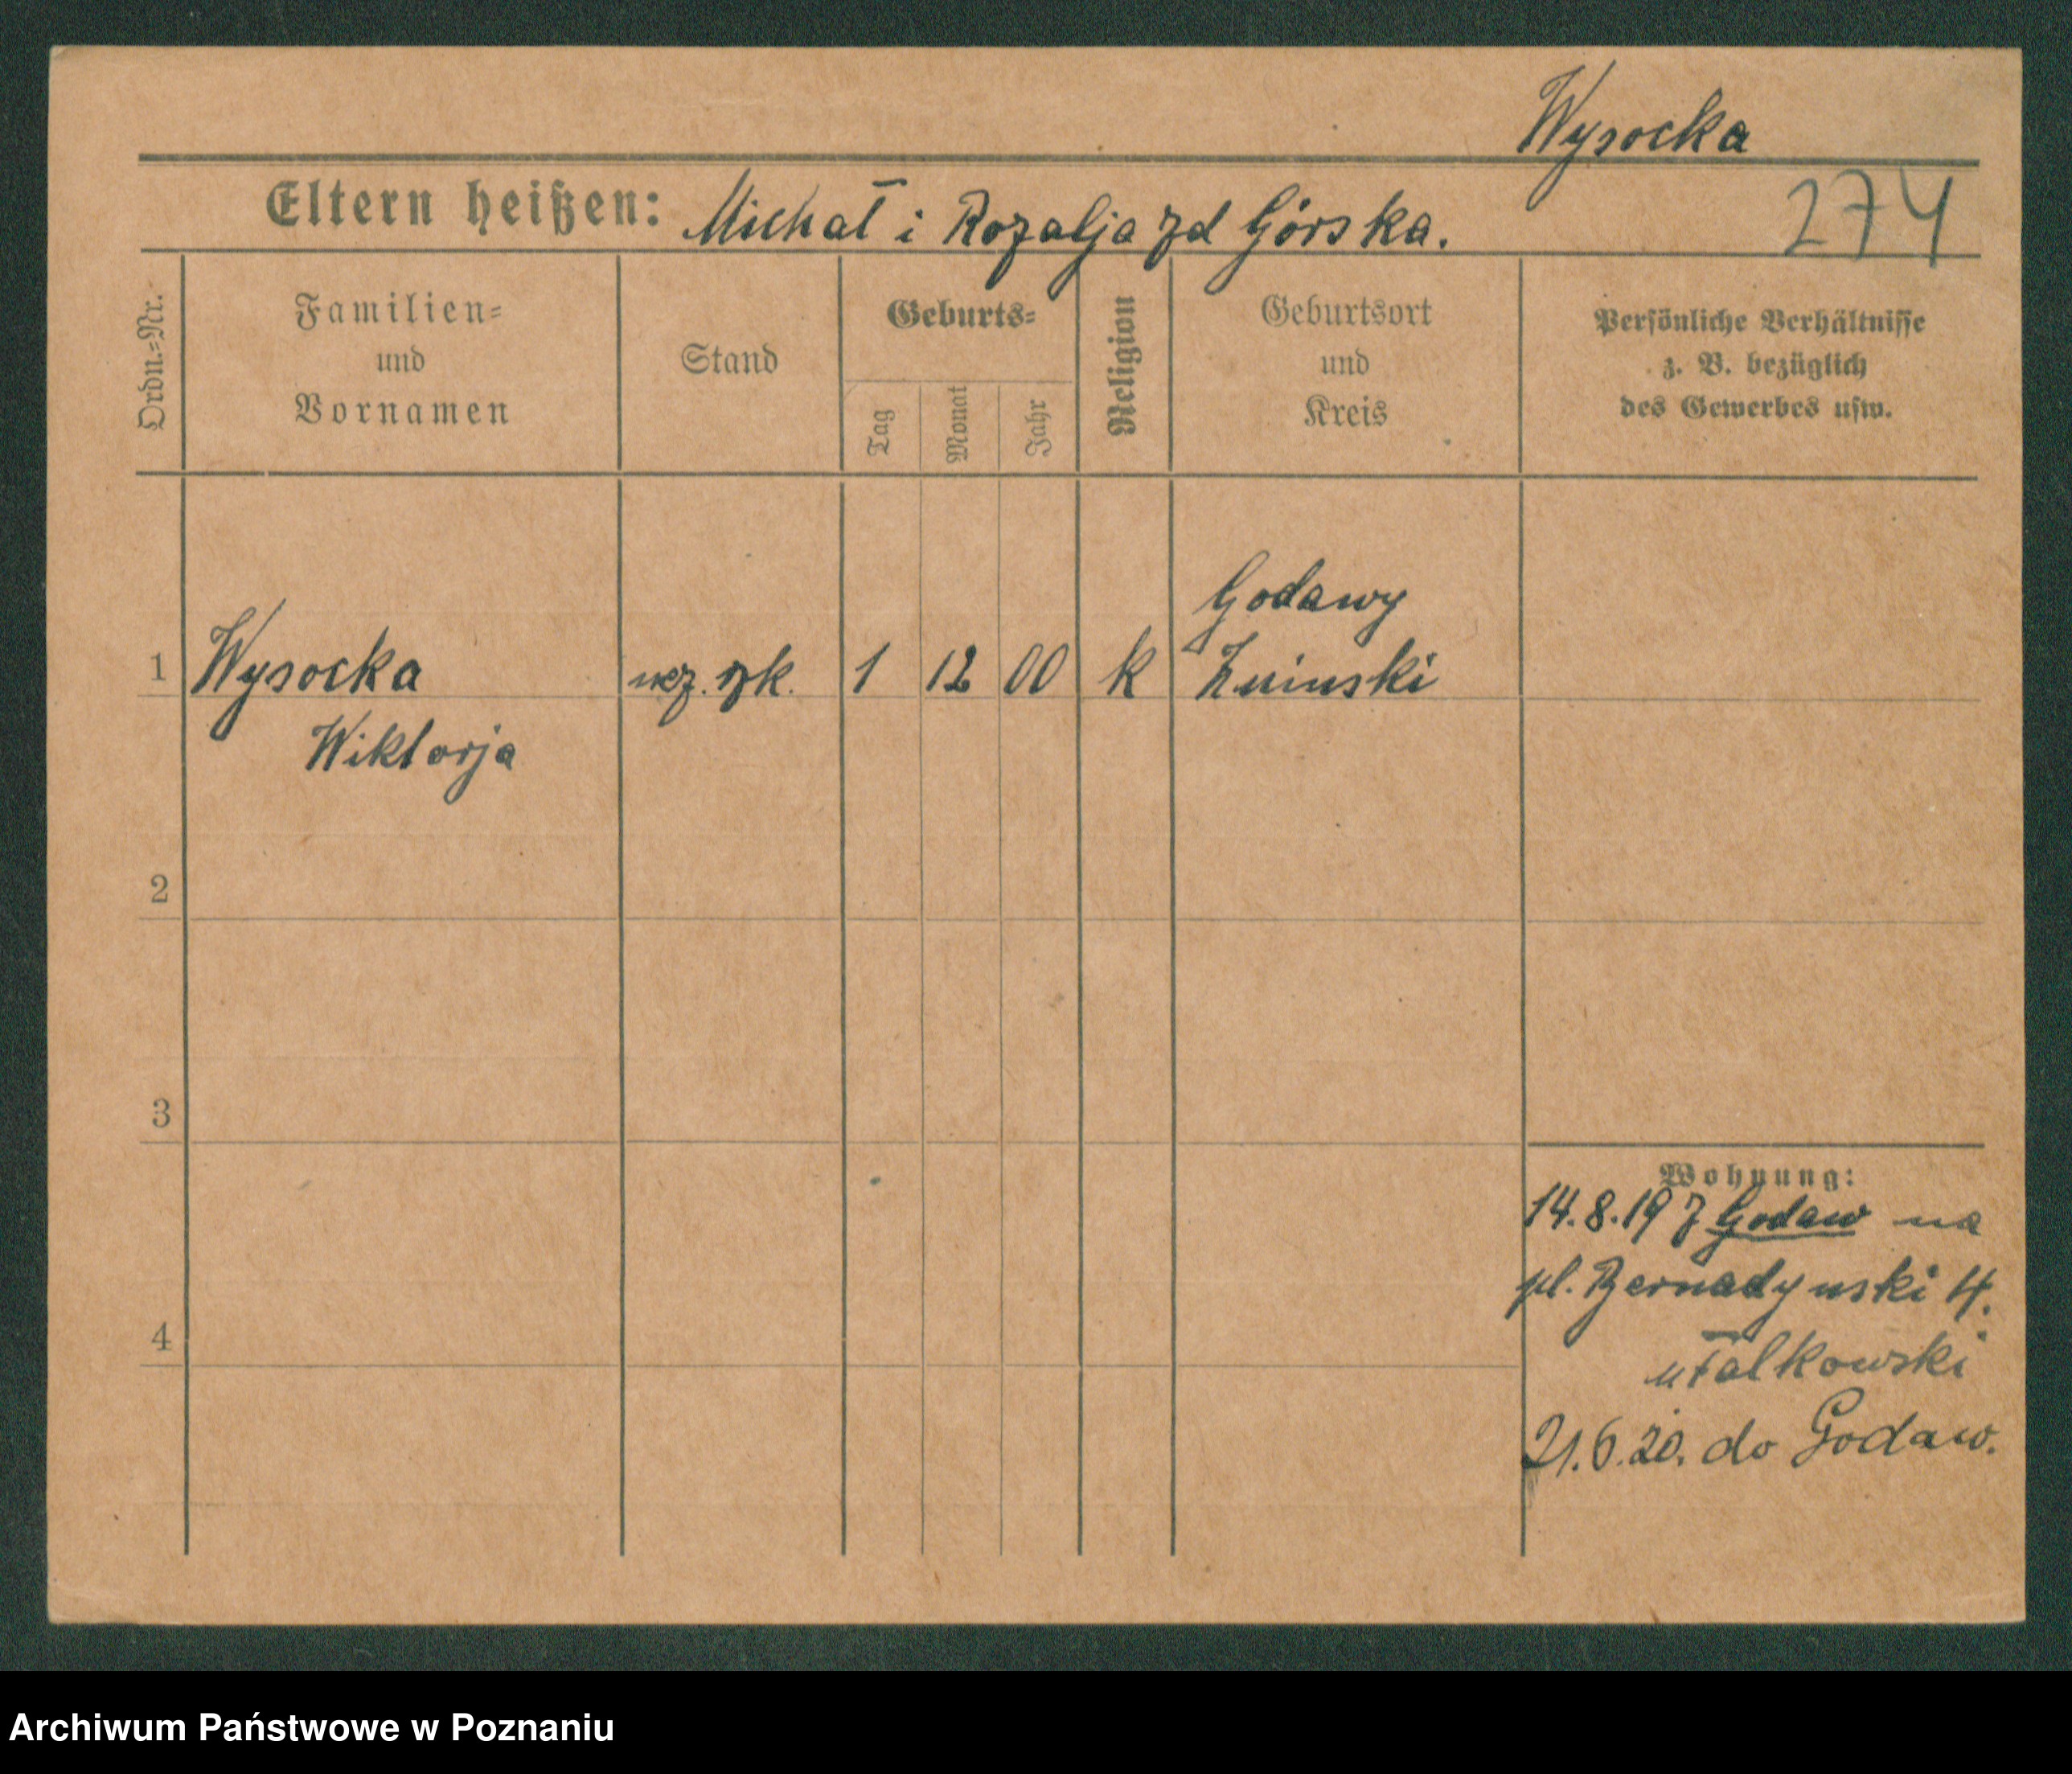 Wysocka
Eltern heißen: Michał i Rozalja zd Górska.
274
Ordn.=Nr.
Familien=
und
Vornamen
Stand
Geburts=
Tag
Monat
Jahr
Religion
Geburtsort
und
Kreis
Persönliche Verhältnisse
z. B. bezüglich
des Gewerbes usw.
Godawy
1 Wysocka 1 12 00 k Żninski
Wiktorja
2
3
4
Wohnung:
14.8.19 z Godaw na
pl. Bernadynski 4.
u Falkowski
21.6.20. do Godaw.
Archiwum Państwowe w Poznaniu